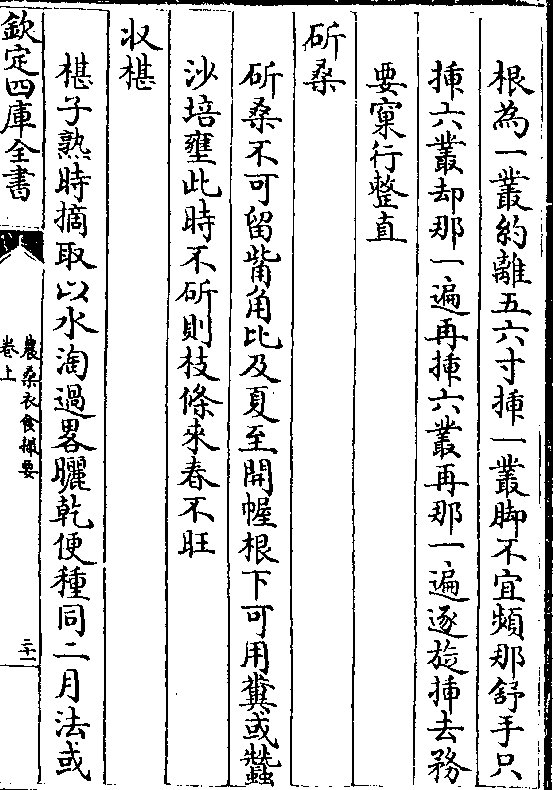 根為一叢約離五六寸揷一叢脚不宜頻那舒手只
揷六叢却那一遍再揷六叢再那一遍逐旋揷去務
要窠行整直
斫桑
斫桑不可留觜角比及夏至開幄根下可用糞或蠶
沙培壅此時不斫則枝條來春不旺
収椹
椹子熟時摘取以水淘過畧曬乾便種同二月法或
欽定四庫全書
農桑衣食撮要
卷上
二十一